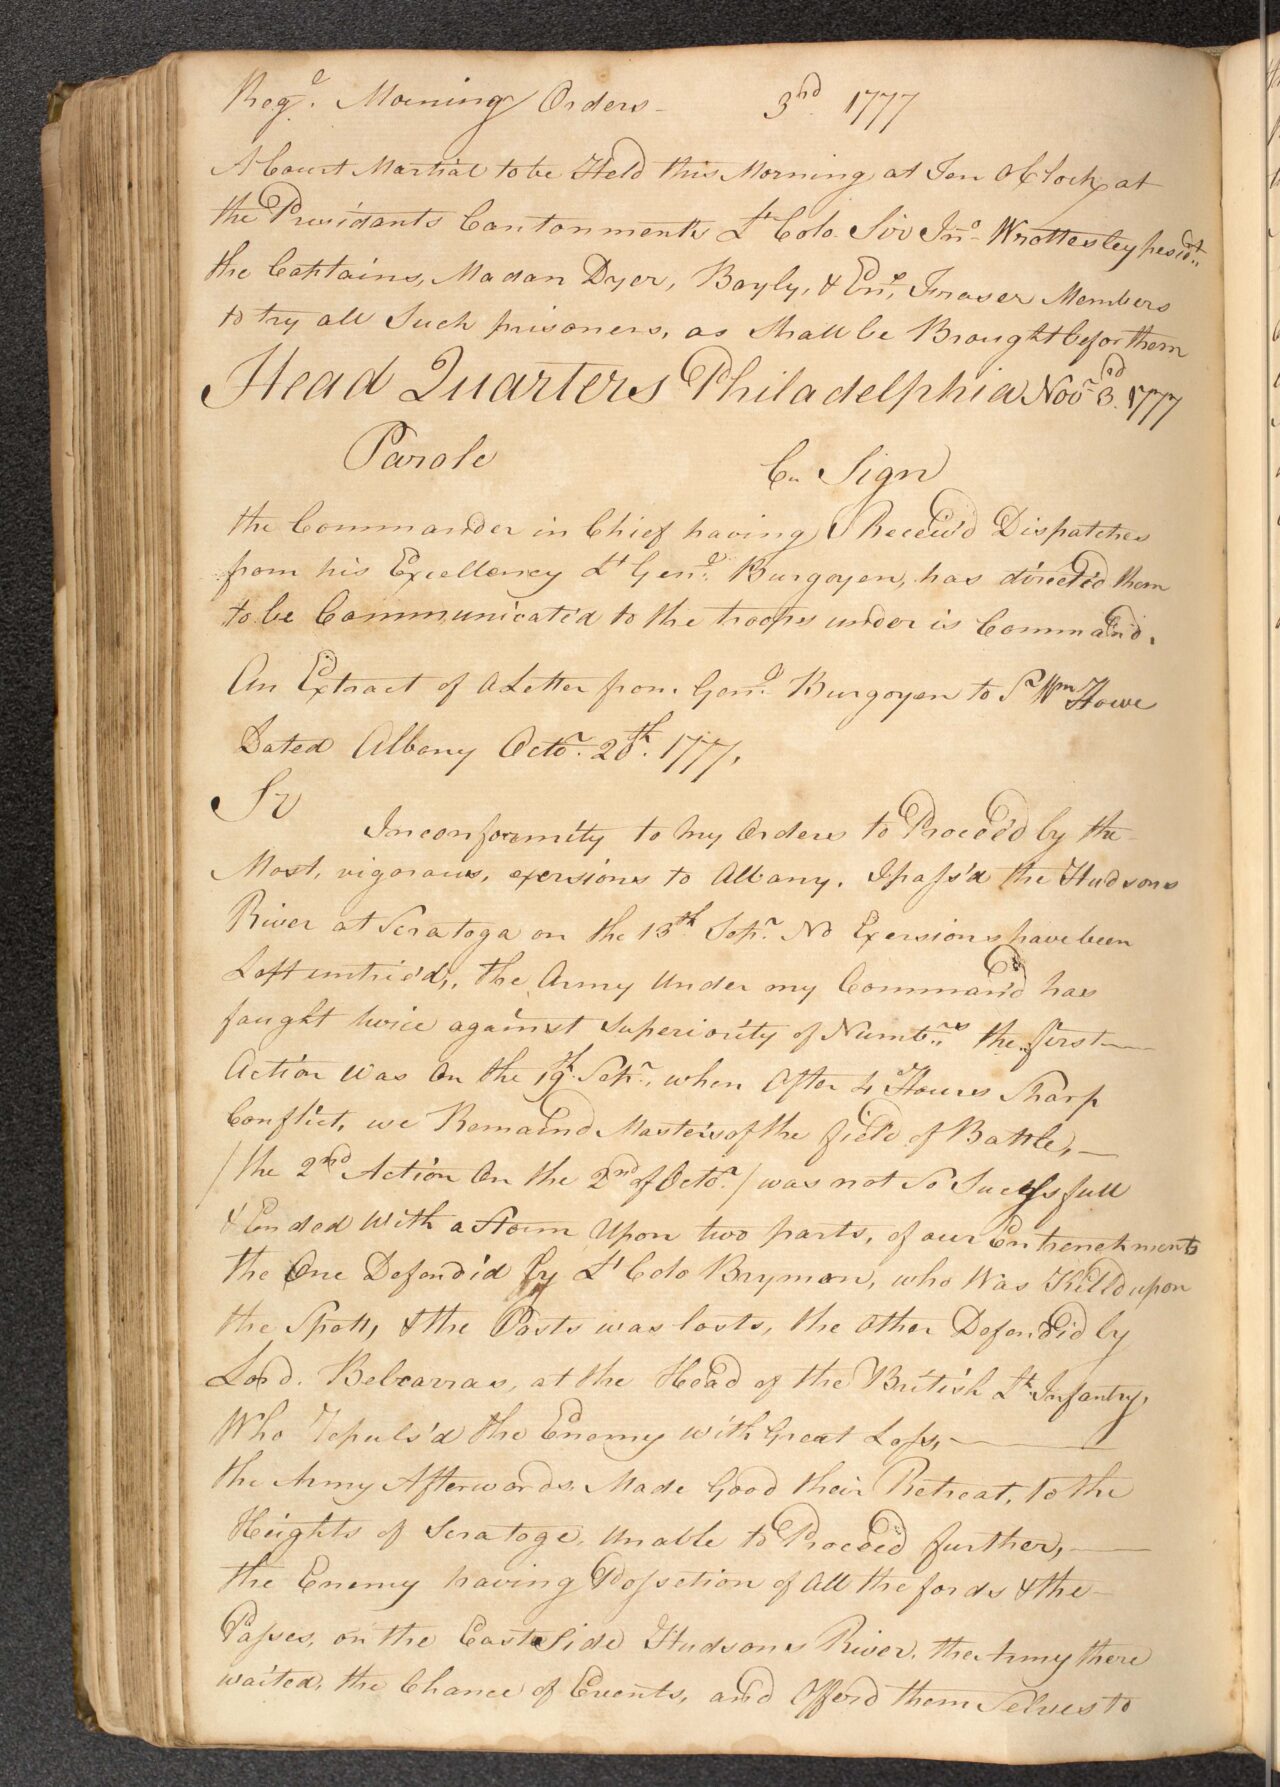 Regl. Morning Orders - 3rd 1777
A Court Martial to be Held this Morning at Ten O Clock at
the Presidants Cantonments Lt Colo. Sir Jno. Wrottesley presidt.
the Captains, Madan Dyer, Bayly, & Ens. Fraser Members
to try all Such prisoners, as Shall be Brought befor them
Head Quarters Philadelphia Novr. 3rd. 1777
Parole Cn Sign
the Commander in Chief having Receiv'd Dispatches
from his Excellency Lt Genl. Burgoyen, has directe'd them
to be Communicate'd to the troops under is Command.
An Extract of A Letter from Genl. Burgoyen to Sr. Wm Howe
Dated Albany Octor. 20th. 1777,
Sr
In conformity to my Orders to Proceed by the
Most, vigoraus, exersions to Albany. I pass'd the Hudsons
River at Seratoga on the 13th Sepr. No Exersions have been
Left untrie'd,, the Army Under my Command has
faught twice against Superiority of Numbrs. the first
Action Was On the 19th Sepr., when After 4 Hours Sharp
Conflict, we Remaind Masters of the field of Battle,
/the 2nd Action On the 2nd of Octor./ was not So Sucessfull
& Ended With a Storm Upon two parts, of our Entrenchments
the One Defend'd by Lt Colo Bryman, who Was Killd upon
the Spott, & the Posts was losts, the other Defendid by
Lord. Belcarras, at the Head of the British Lt. Infantry,
Who repuls'd the Enemy with Great Loss,
the Army Afterwards Made Good their Retreat, to the
Heights of Seratoge, Unable to Proceed further,
the Enemy having Possetion of All the fords & the
Passes, on the East Side Hudsons River, the Army there
waited, the Chance of Events, and Offerd them Selves to